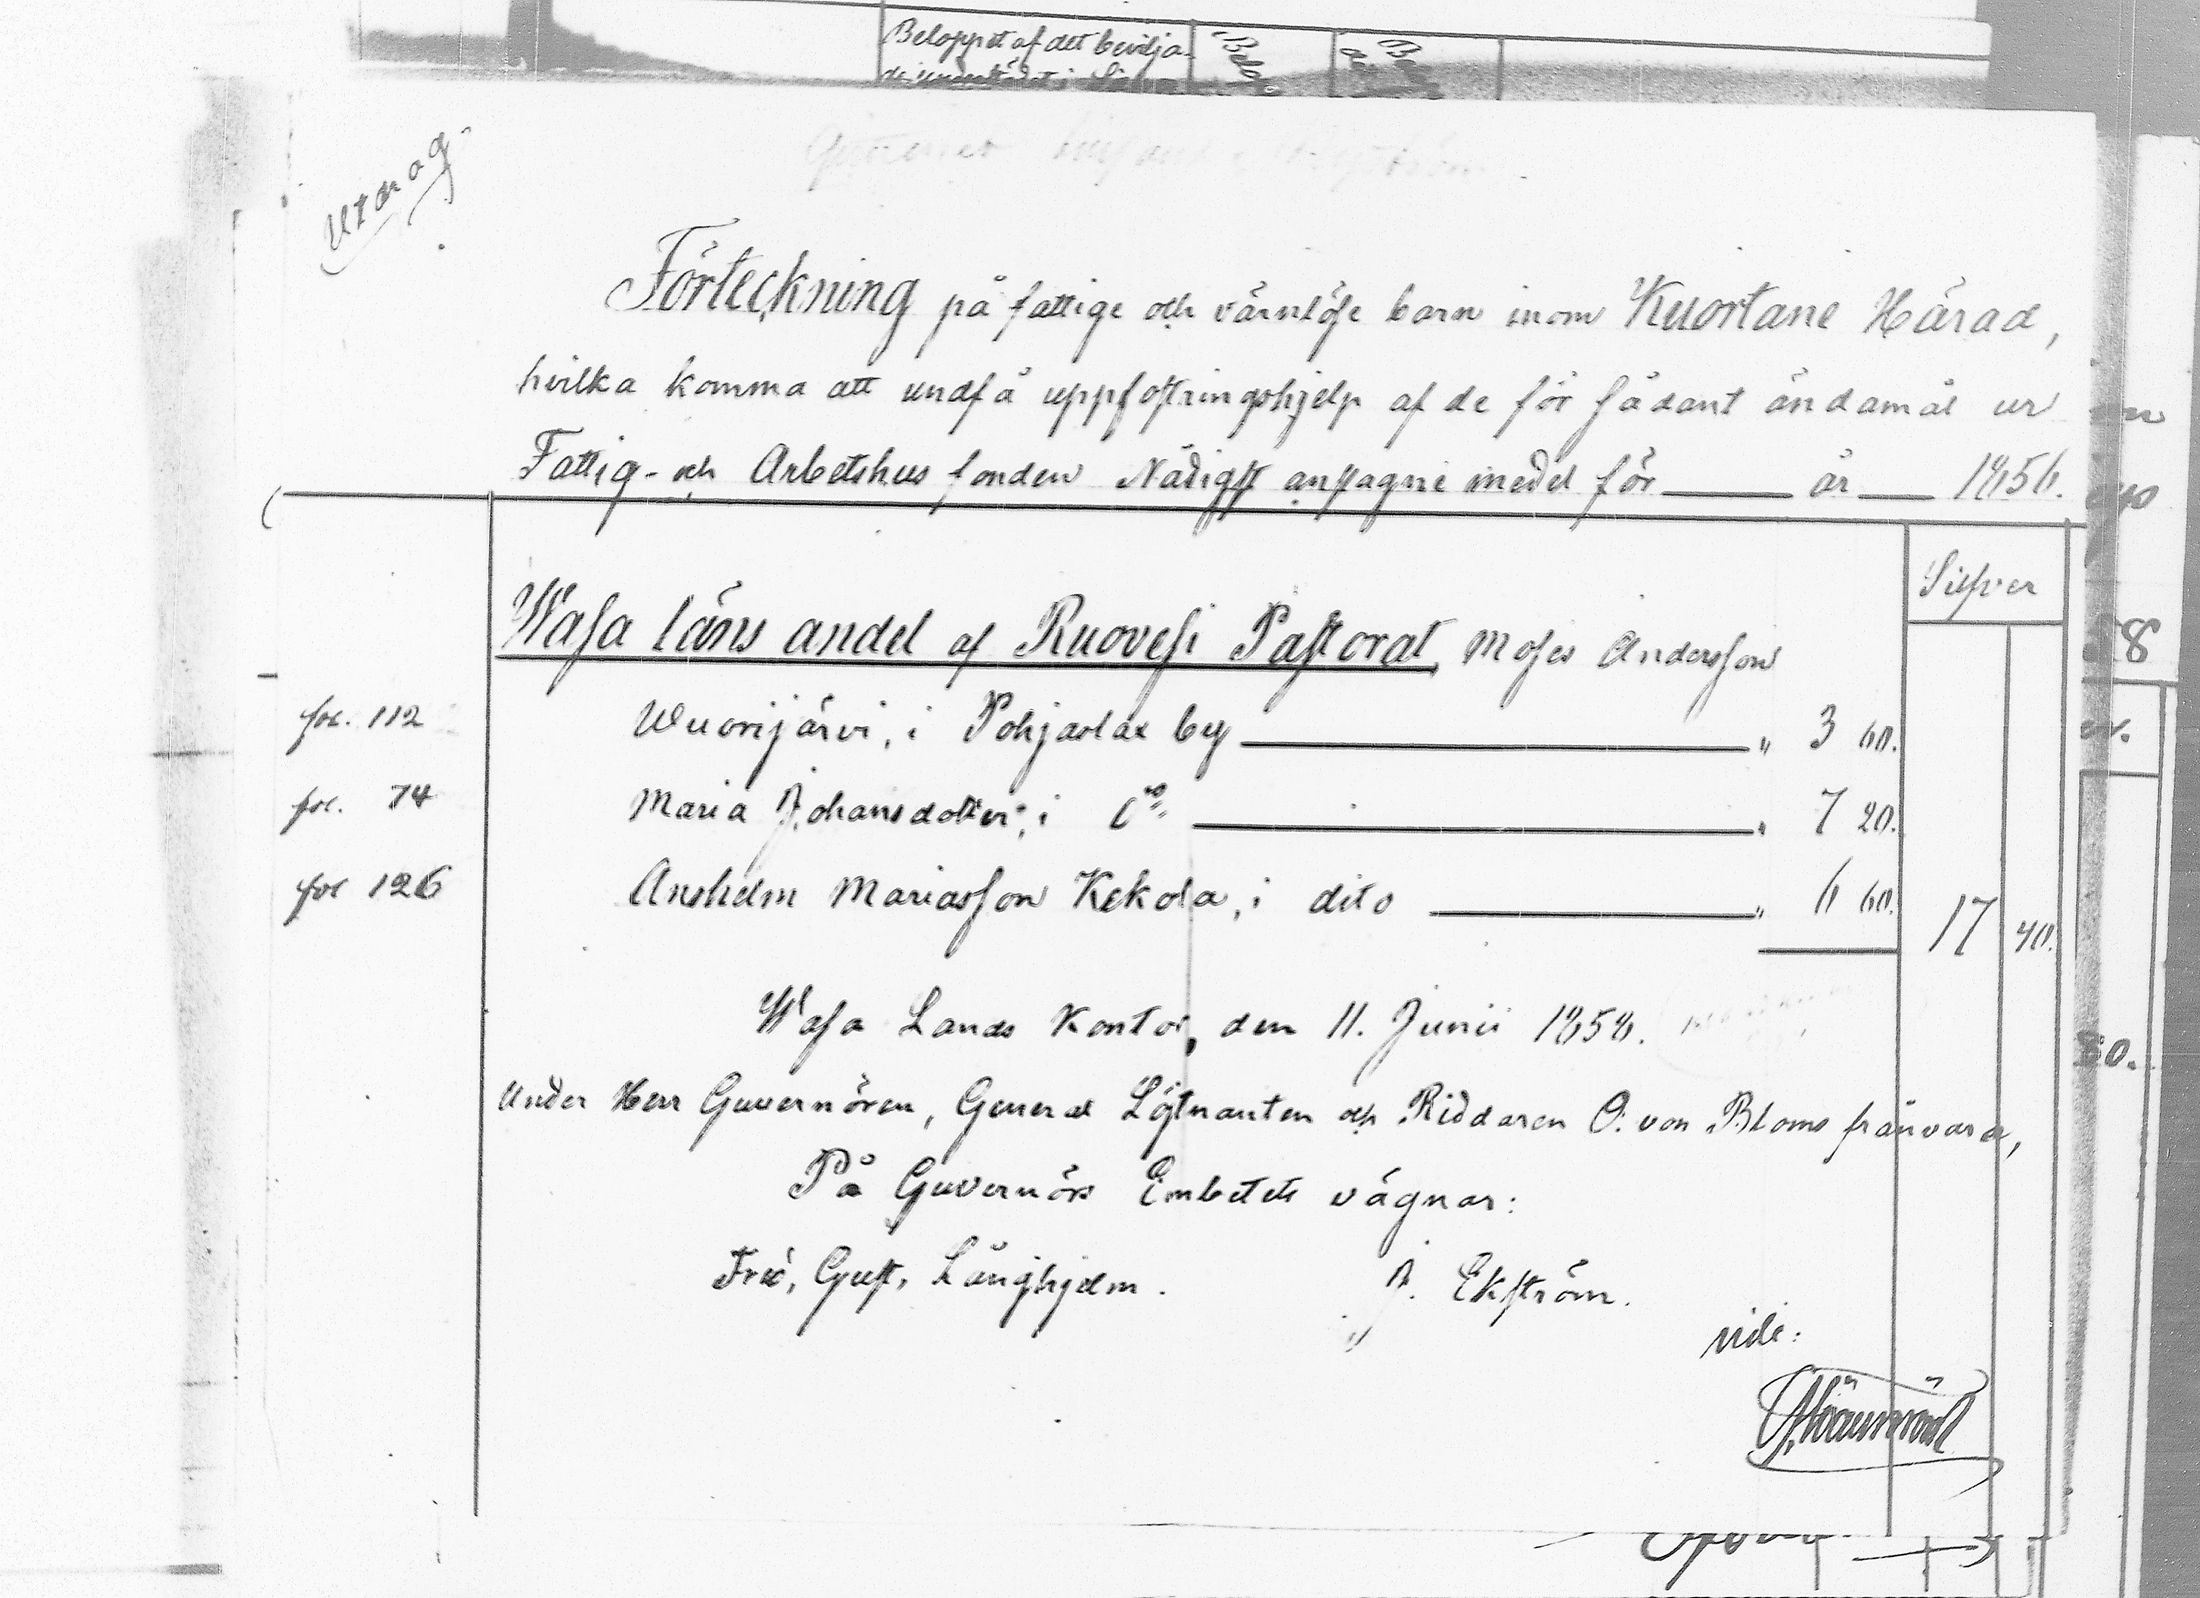 Beloppet af det bevilja-
de understödet i
Utdrag
Förteckning på fattige och värnlöse barn inom Kuortane Härad,
hvilka komma att undfå uppfostringshjelp af de för sådant ändamål ur
Fattig- och Arbetshus fonden Nådigst anslagne medel för — år — 1856.
Silfver
Wasa läns andel af Ruovesi Pastorat Moses Andersson
fol. 112 Wuorijärvi, i Pohjaslax by — " 3 60.
fol. 74 Maria Johansdotter, i do — " 7 20.
fol 126 Anshelm Mariasson Kekola, i dito — " 6 60. 17 40.
Wasa Lands Kontor, den 11. Junii 1858.
Under Herr Guvernören, General Löjtnanten och Riddaren O. von Bloms frånvaro,
På Guvernörs Embetets vägnar:
Fred. Gust. Långhjelm. J. Ekström.
vide:
80.